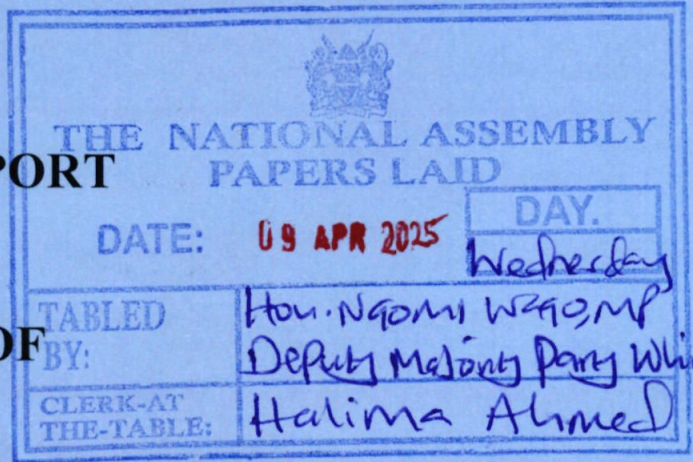 THE NATIONAL ASSEMBLY
PORT
PAPERS LAID
DATE: 09 APR 2025 DAY.
Wednesday
TABLED BY: Hon. Naomi Waqo, MP
OF
Deputy Majority Party Whi
CLERK-AT THE-TABLE: Halima Ahmed